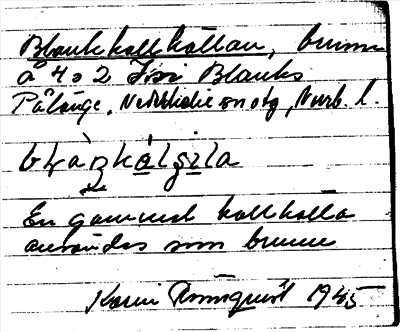 Blankkallkällan, brunn
å 4:2 Jssi Blanks
Pålänge, Nederkalix sn o tg, Norrb. l.
En gammal kallkälla
användes som brunn
Karin Rönnqvist 1945